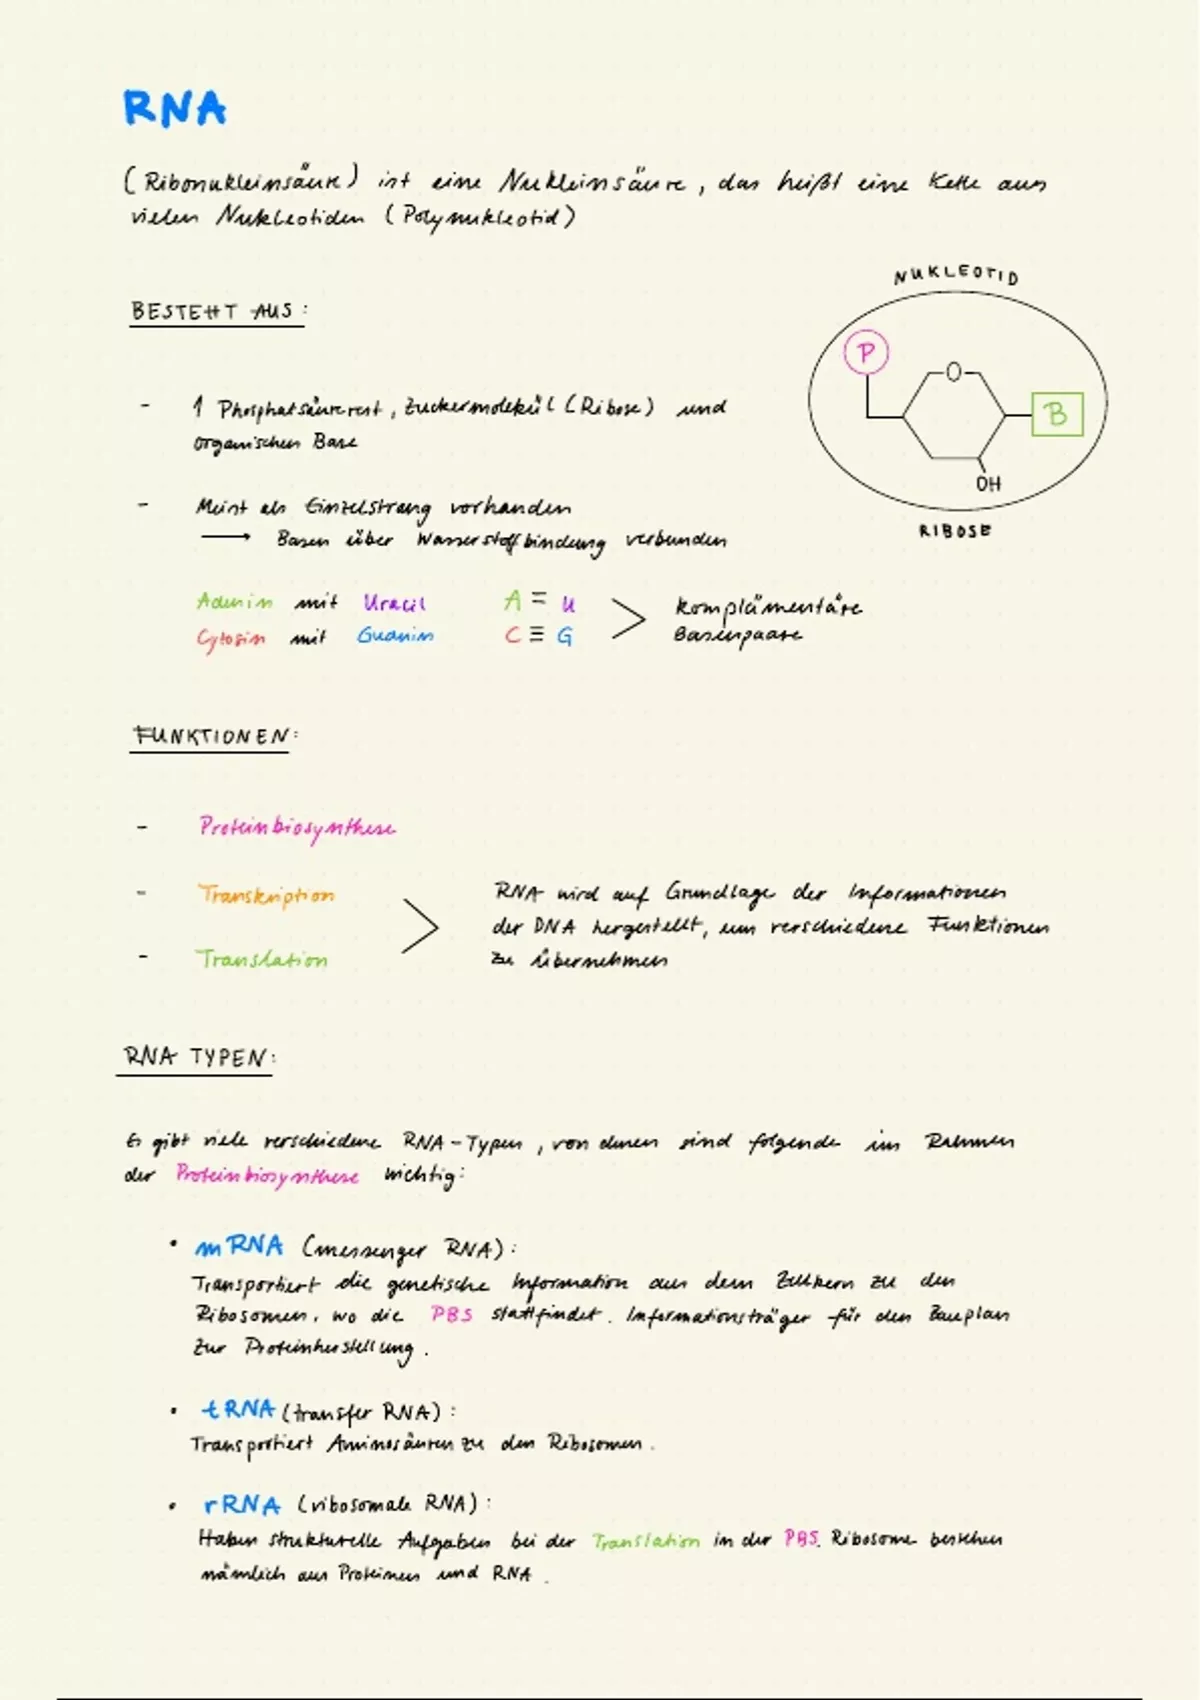 RNA
(Ribonukleinsäure) ist eine Nukleinsäure, das heißt eine Kette aus
vielen Nukleotiden (Polynukleotid)
NUKLEOTID
BESTEHT AUS:
P
O
B
OH
RIBOSE
- 1 Phosphatsäurerest, Zuckermolekül (Ribose) und
organischen Base
- Meist als Einzelstrang vorhanden
→ Basen über Wasserstoffbindung verbunden
Adenin mit Uracil A = U > komplämentäre
Cytosin mit Guanin C ≡ G Basenpaare
FUNKTIONEN:
- Proteinbiosynthese
- Transkription > RNA wird auf Grundlage der Informationen
der DNA hergestellt, um verschiedene Funktionen
- Translation zu übernehmen
RNA TYPEN:
Es gibt viele verschiedene RNA-Typen, von denen sind folgende im Rahmen
der Proteinbiosynthese wichtig:
• mRNA (messenger RNA):
Transportiert die genetische Information aus dem Zellkern zu den
Ribosomen, wo die PBS stattfindet. Informationsträger für den Bauplan
zur Proteinherstellung.
• tRNA (transfer RNA):
Transportiert Aminosäuren zu den Ribosomen.
• rRNA (ribosomale RNA):
Haben strukturelle Aufgaben bei der Translation in der PBS. Ribosome bestehen
nämlich aus Proteinen und RNA.